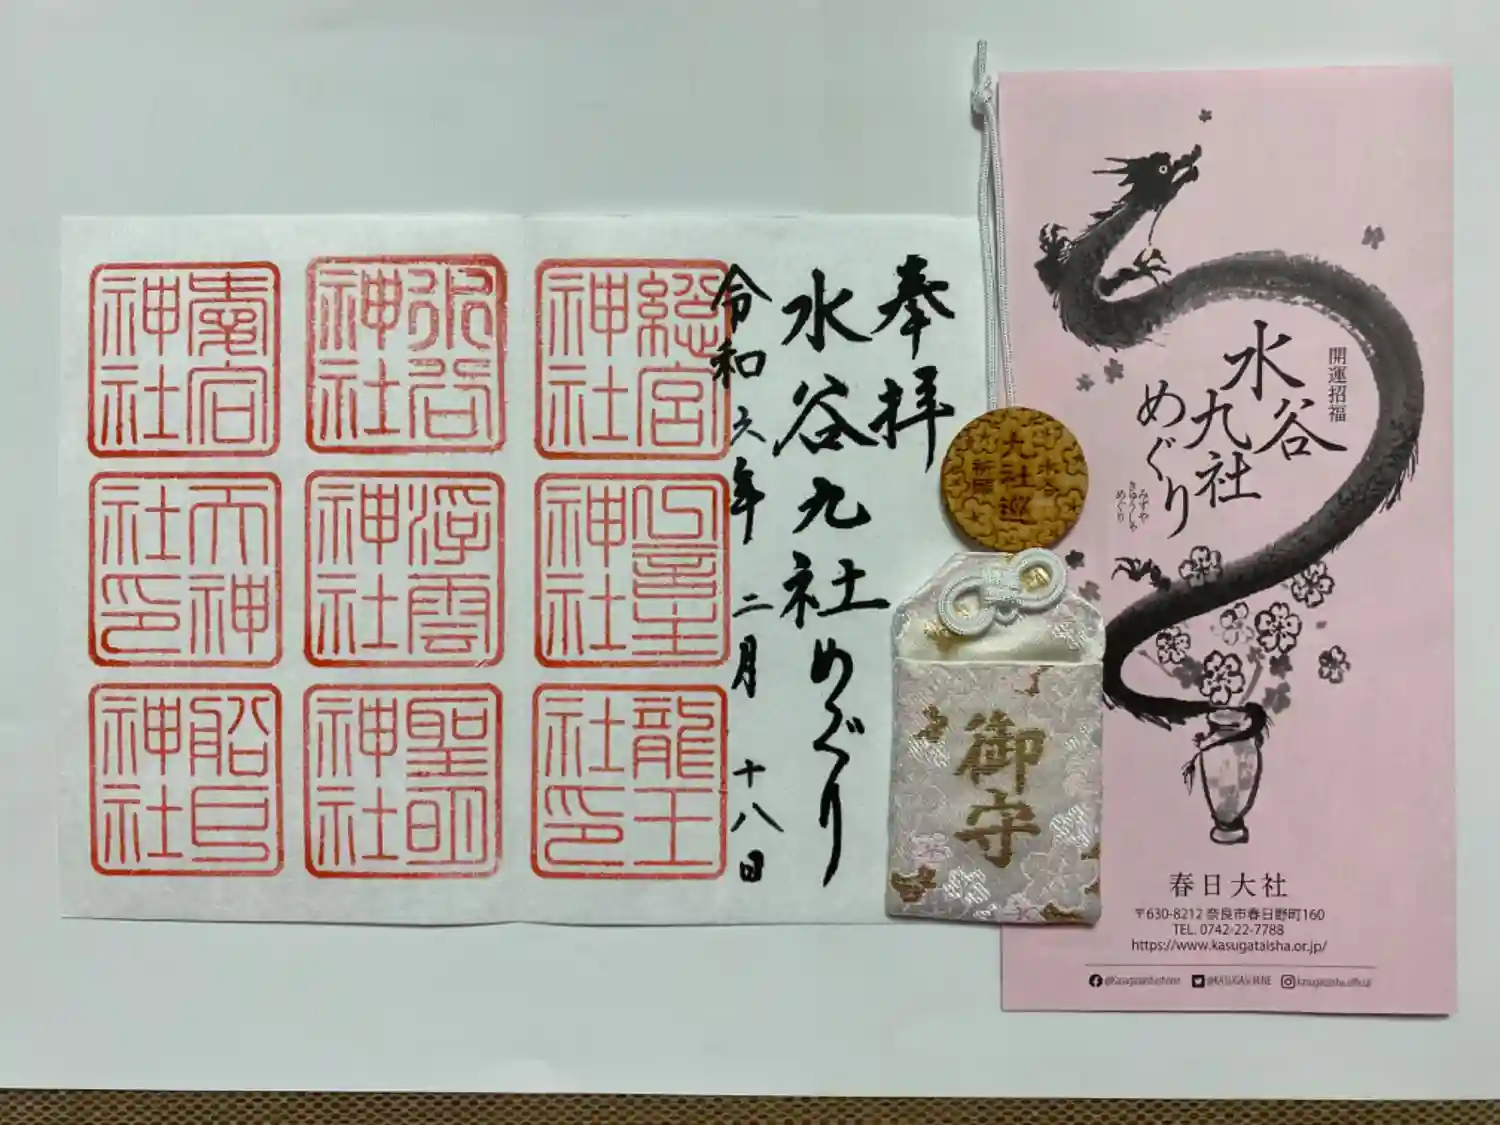 奉拝
水谷九社めぐり
令和六年二月十八日
総宮神社
水谷神社
南宮神社
神社
浮雲神社
天神社印
龍王社印
聖明神社
船戸神社
水谷
九社巡
祈願
御守
開運招福
水谷
九社
めぐり
みずや
きゅうしゃ
めぐり
春日大社
〒630-8212 奈良市春日野町160
TEL. 0742-22-7788
https://www.kasugataisha.or.jp/
@KASUGASHRINE
kasugataisha.official